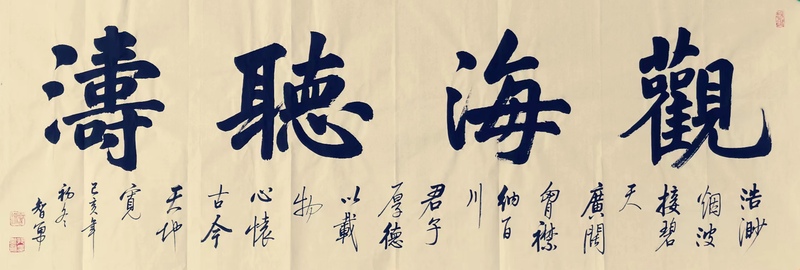 觀海聽濤
浩渺
烟波
接碧
天
廣闊
胷襟
納百
川
君子
厚德
以載
物
心懷
古今
天地
寬
己亥年
初冬